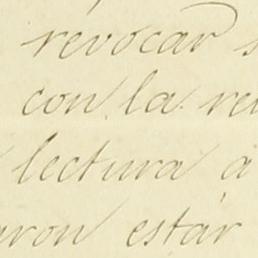 revocar
con la
lectura a
estár